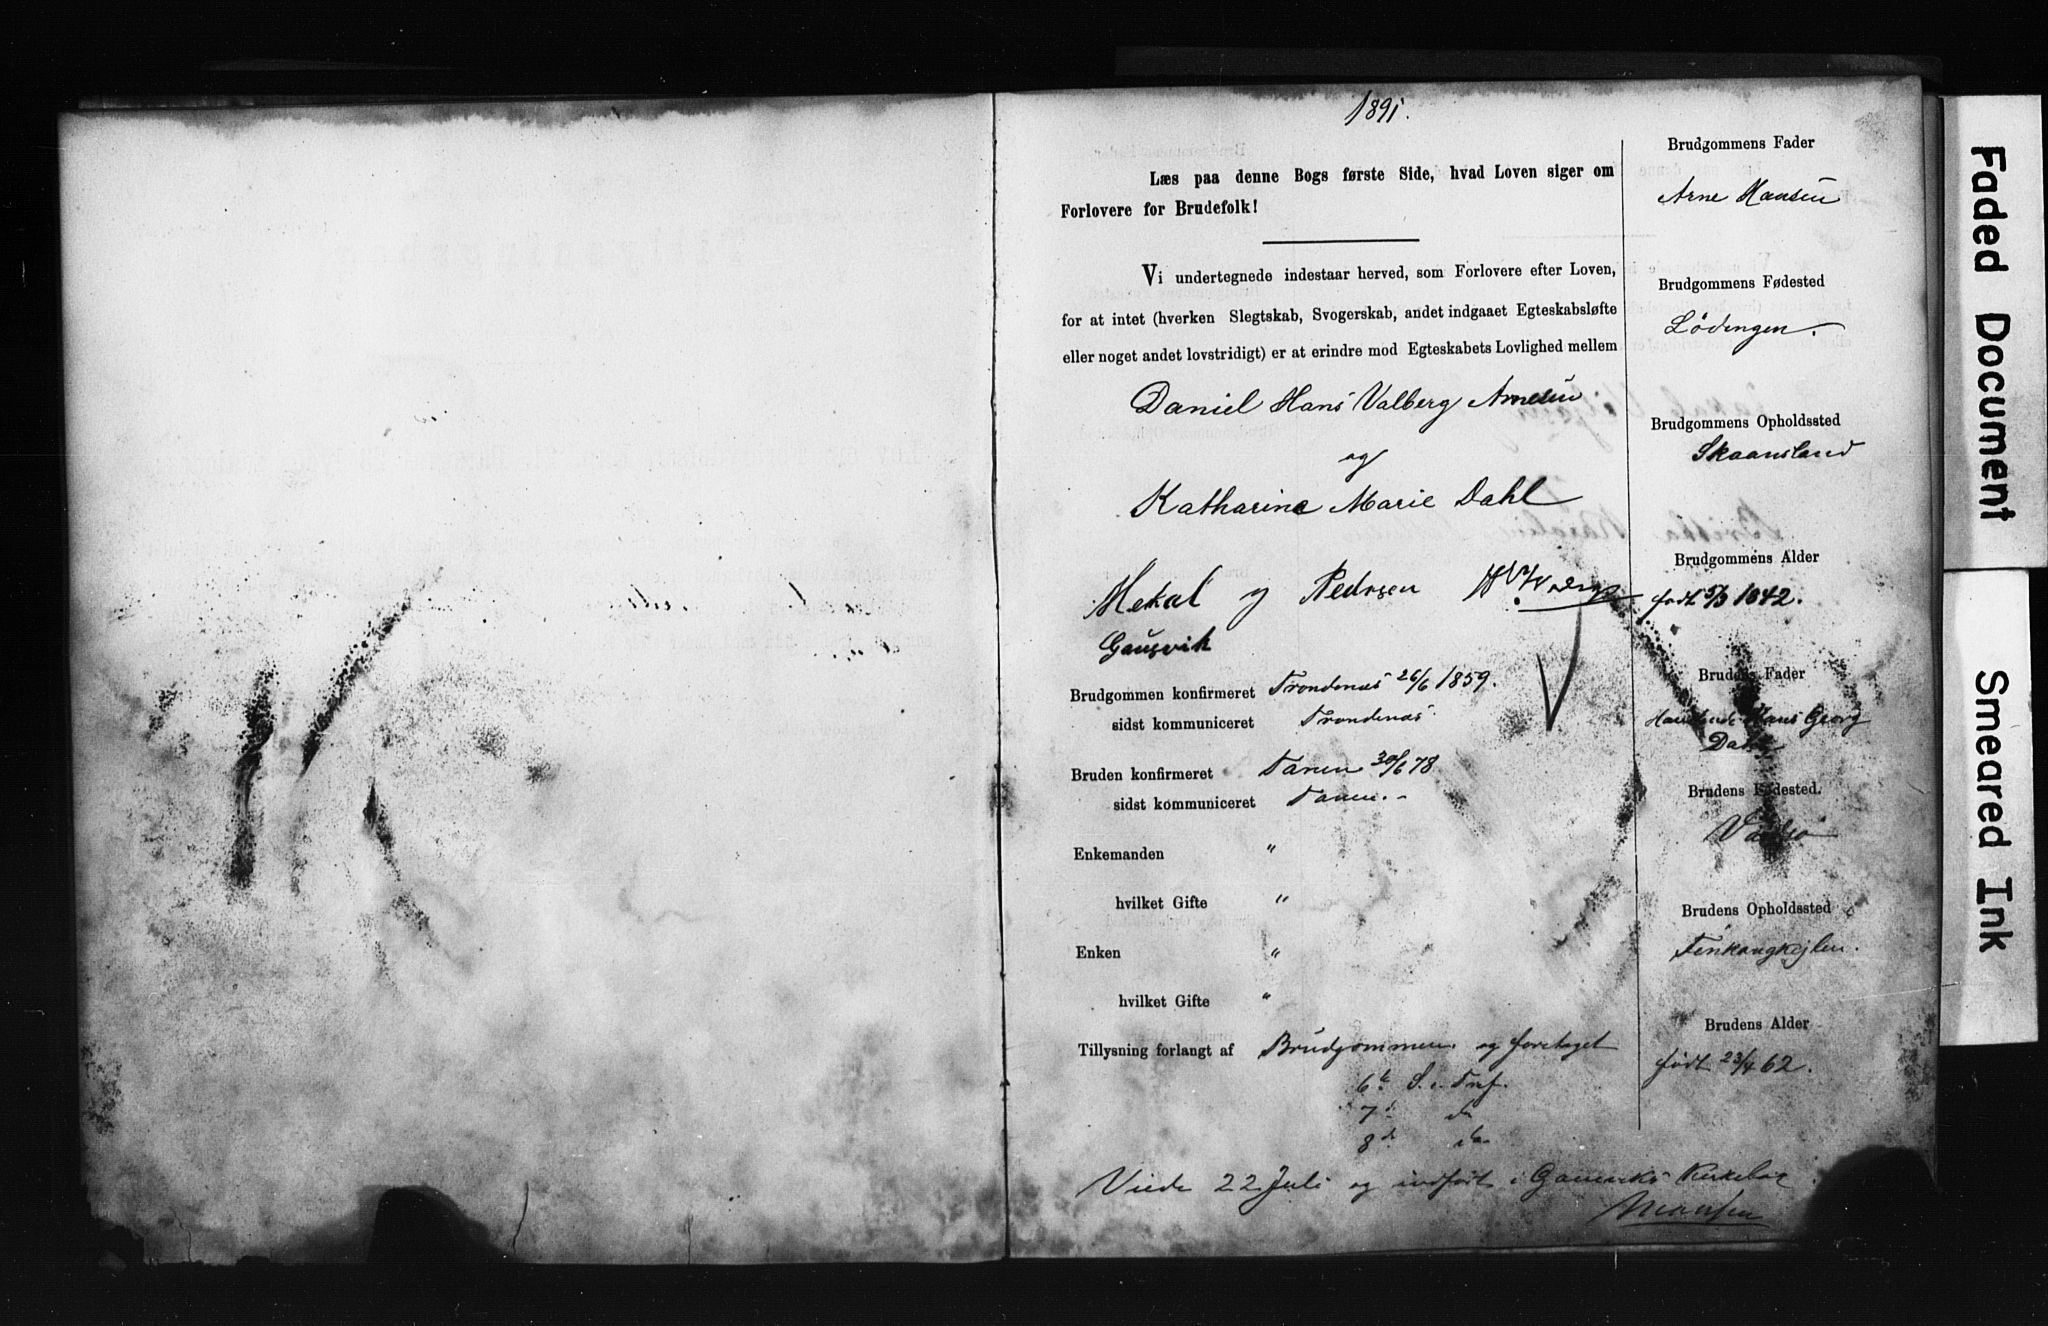 1891.
Læs paa denne Bogs første Side, hvad Loven siger om
Forlovere for Brudefolk!
Vi undertegnede indestaar herved, som Forlovere efter Loven,
for at intet (hverken Slegtskab, Svogerskab, andet indgaaet Egteskabsløfte
eller noget andet lovstridigt) er at erindre mod Egteskabets Lovlighed mellem
Daniel Hans Valberg Arnesen
og
Katharine Marie Dahl
Mekal Pedersen
Gausvik
Brudgommen konfirmeret Trondenæs 26/6 1859.
sidst kommuniceret Trondenæs
Bruden konfirmeret Tanen 30/6 78
sidst kommuniceret Tanen. -
Enkemanden "
hvilket Gifte "
Enken "
hvilket Gifte "
Tillysning forlangt af Brudgommen og foretaget
6te S. e. Tref.
7de do
8de do
Viede 22 Juli og indført i Kirkebog
Brudgommens Fader
Arne Hansen
Brudgommens Fødested
Lödingen.
Brudgommens Opholdssted
Skaansland
Brudgommens Alder
født 5/3 1842.
Brudens Fader
Hans Georg
Dahl
Brudens Fødested.
Vadsø
Brudens Opholdssted
Finkongkejlen.
Brudens Alder
født 23/4 62.
Faded Document
Smeared Ink